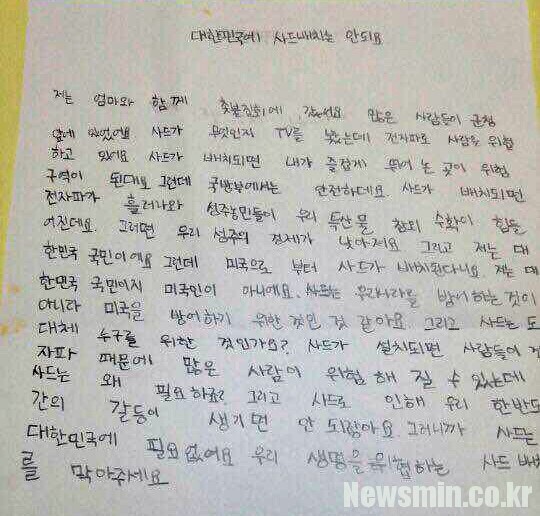 대한민국에 사드배치는 안되요
저는 엄마와 함께 촛불집회에 갔어요 많은 사람들이 군청
앞에 있었어요 사드가 무엇인지 TV를 봤는데 전자파로 사람을 위험
하고 있어요 사드가 배치되면 내가 즐겁게 뛰어 논 곳이 위험
구역이 된대요 그런데 국방부에서는 안전하데요. 사드가 배치되면
전자파가 흘러나와 성주농민들이 우리 특산물 참외 수확이 힘들
어진데요. 그러면 우리 성주의 경제가 낮아져요 그리고 저는 대
한민국 국민이에요 그런데 미국으로 부터 사드가 배치된다니요 저는 대
한민국 국민이지 미국인이 아니에요. 사드는 우리나라를 방어하는 것이
아니라 미국을 방어하기 위한 것인 것 같아요. 그리고 사드는 도
대체 누구를 위한 것인가요? 사드가 설치되면 사람들이 전
자파 때문에 많은 사람이 위험해 질 수 있는데
사드는 왜 필요하죠? 그리고 사드로 인해 우리 한반도
간의 갈등이 생기면 안 되잖아요. 그러니까 사드는
대한민국에 필요없어요 우리 생명을 위협하는 사드 배치
를 막아주세요
Newsmin.co.kr